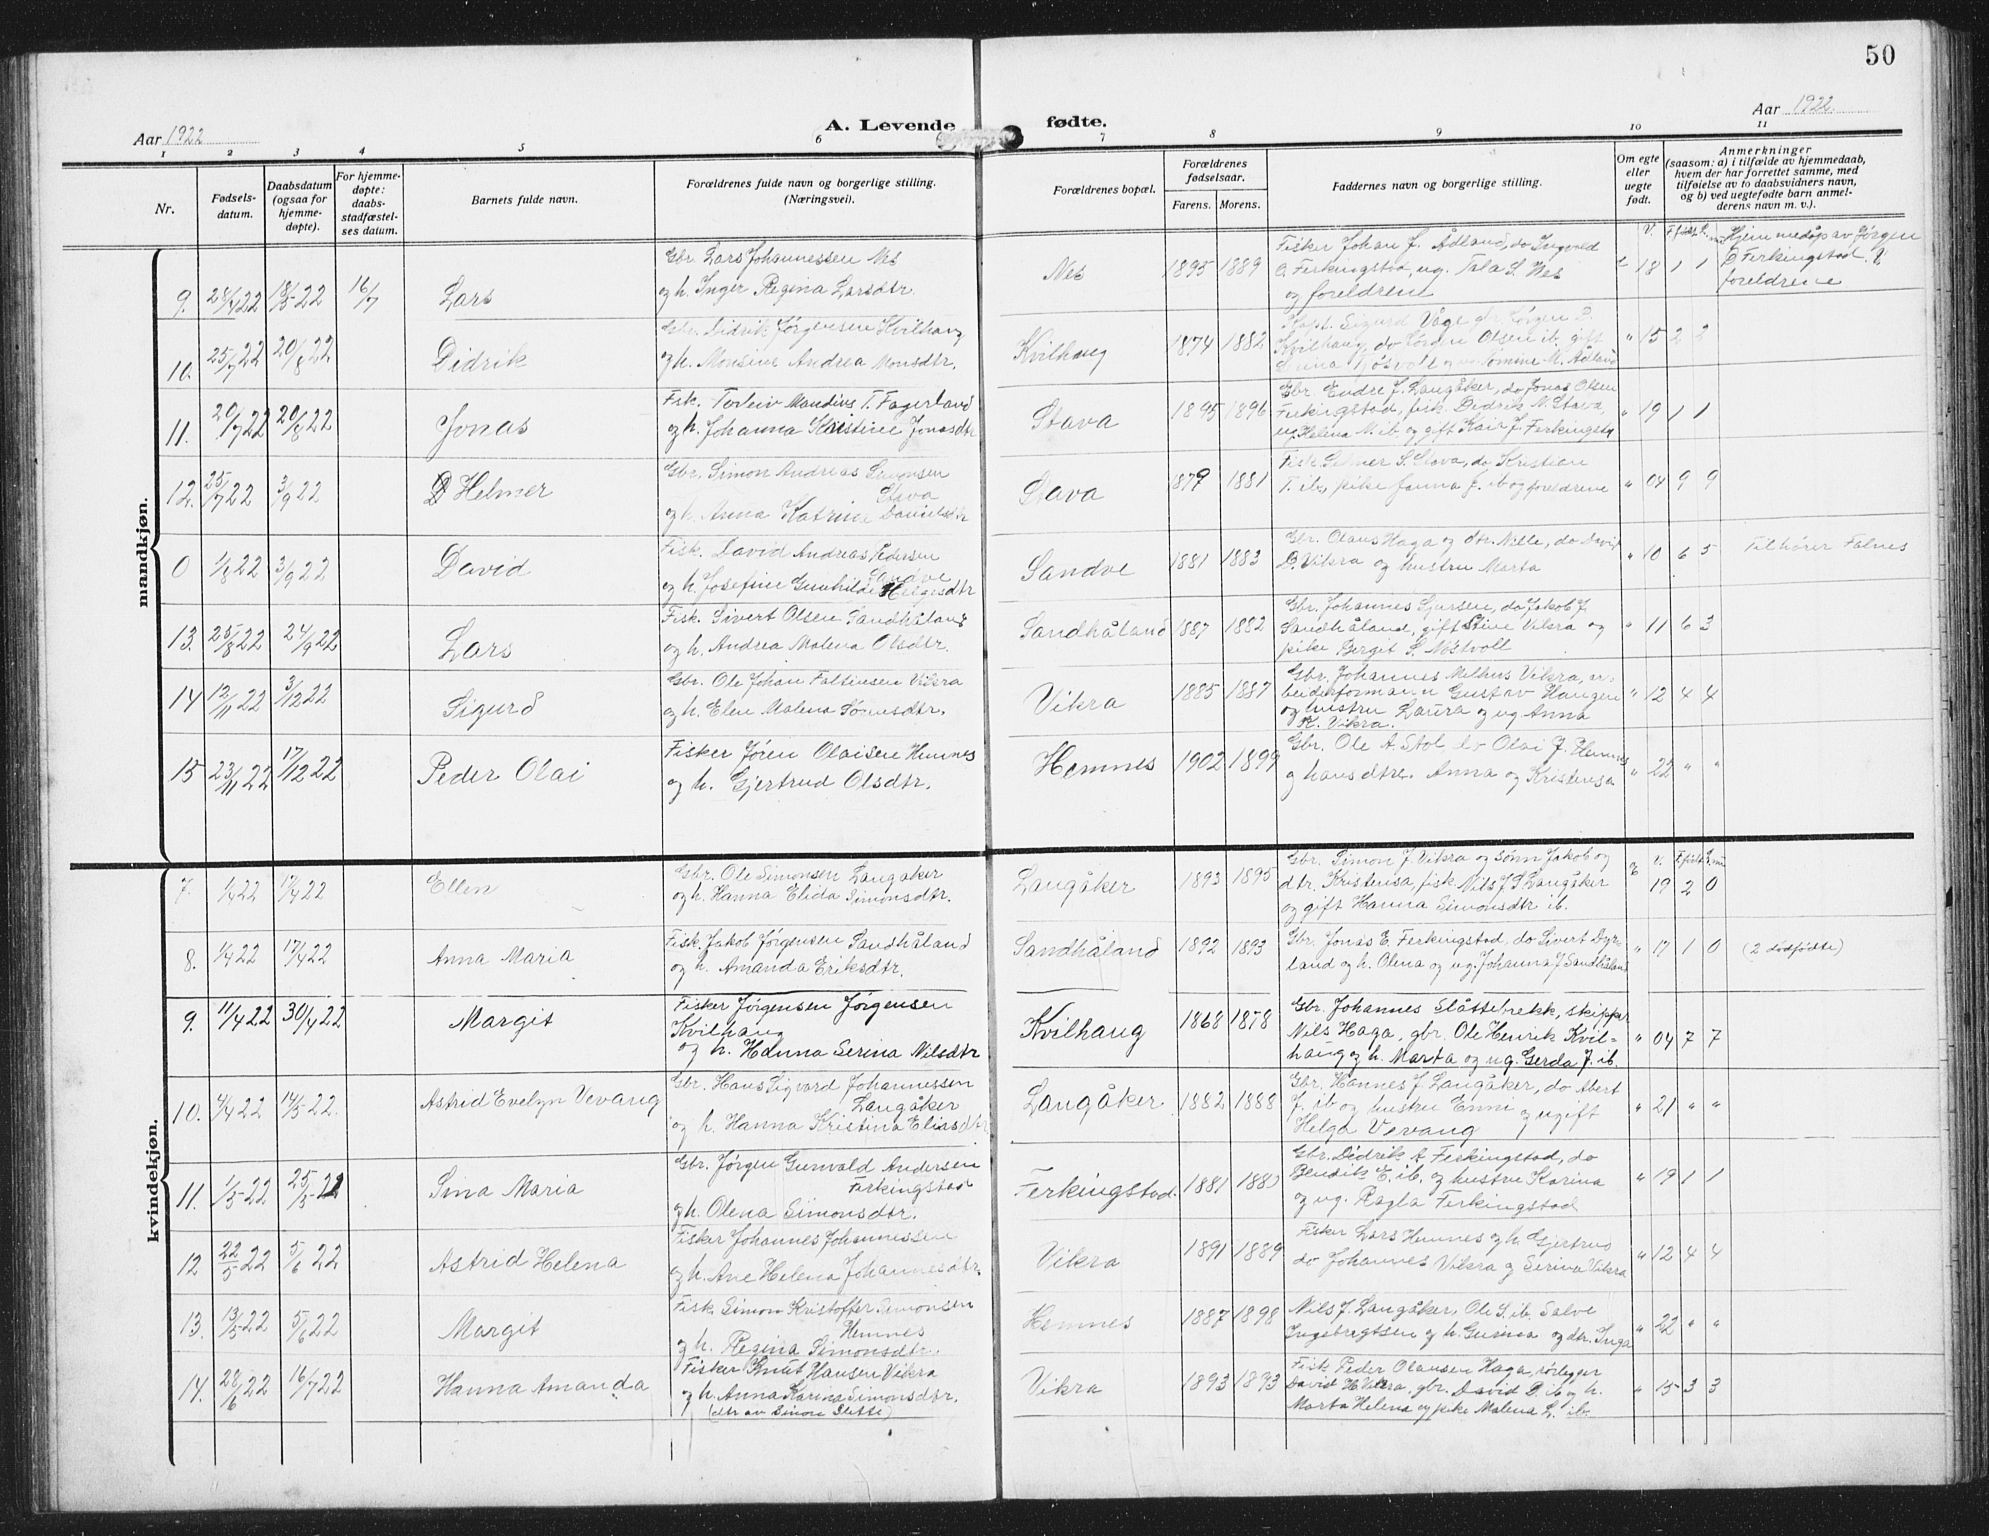 50
Aar 1922
A. Levende fødte.
Aar 1922.
1 2 3 4 5 6 7 8 9 10 11
Nr.
Fødsels-
datum.
Daabsdatum
(ogsaa for
hjemme-
døpte).
For hjemme-
døpte:
daabs-
stadfæstel-
ses datum.
Barnets fulde navn.
Forældrenes fulde navn og borgerlige stilling.
(Næringsvei).
Forældrenes bopæl.
Forældrenes
fødselsaar.
Farens. Morens.
Faddernes navn og borgerlige stilling.
Om egte
eller
uegte
født.
Anmerkninger
(saasom: a) i tilfælde av hjemmedaab,
hvem der har forrettet samme, med
tilføielse av to daabsvidners navn,
og b) ved uegtefødte barn anmel-
derens navn m. v.).
mandkjøn.
Gbr. Lars Johannessen Nes
9. 18/5 22 16/7 Lars og h. Inger Regina Larsdtr.
Nes 1895 1889
Fisker Johan J. Ådland, do Ingvald
O. Ferkingstad, ug. Tala S. Nes
og foreldrene
18 1 1
Hjemmedøp av Jørgen
Ferkingstad
foreldrene
Gbr. Didrik Jørgensen Kvilhaug
10. 25/7 22 20/8 22 Didrik og h. Monsine Andrea Monsdtr.
Kvilhaug 1874 1882
Kapt. Sigurd Våge gbr. Jørgen
Kvilhaug, do Olsen ib. gift
M. Ådland
" 15 2 2
Fsk. Torleiv Mandius T. Fagerland
11. 20/7 22 20/8 22 Jonas og h. Johanna Kristine Jonasdtr
Stava 1895 1896
Gbr. Endre J. Langåker, do Jonas Olsen
Ferkingstad, fisk. Didrik N. Stava,
ug. Helena M. ib og gift J. Ferkingsta
" 19 1 1
Gbr. Simon Andreas Simonsen
Stava
12. 25/7 22 3/9 22 Helmer og h. Anna Katrine Danielsdtr
Stava 1879 1881
Fisk. S. Stava, do Kristian
T. ib, pike Janna J. ib og foreldrene
" 04 9 9
Fisk. David Andreas Pedersen
Sandve
0 1/8 22 3/9 22 David og h. Josefine Gunhilde Helgesdtr
Sandve 1881 1883
Gbr. Olaus Haga og dtr. Nille, do David
D. Vikra og hustru Marta
" 10 6 5 Tilhører Falnes
Fisk. Sivert Olsen Sandhåland
13. 25/8 22 24/9 22 Lars og h. Andrea Malena Olsdtr.
Sandhåland 1887 1882
Gbr. Johannes Sjursen, do Jakob J.
Sandhåland, gift Stine Vikra og
pike Bergit S. Nøstvoll
" 11 6 3
Gbr. Ole Johan Faltinsen Vikra
14 12/11 22 3/12 22 Sigurd og h. Elen Malena Sørensdtr.
Vikra 1885 1887
Gbr. Johannes Melhus Vikra, ar-
beiderformann Gustav Haugen
og hustru Laura og ug Anna
K. Vikra.
" 12 4 4
Fisker Jøren Olaisen Hemnes
15 23/11 22 17/12 22 Peder Olai og h. Gjertrud Olsdtr.
Hemnes 1902 1899
Gbr. Ole A. Stol do Olai J. Hemnes
og hans dtre. Anna og Kristensa
" 22 " "
kvindekjøn.
Gbr. Ole Simonsen Langåker
7. 1/4 22 17/4 22 Ellen og h. Hanna Elida Simonsdtr.
Langåker 1893 1895
Gbr. Simon J. Vikra og sønn Jakob og
dtr. Kristensa, fisk. Nils J. S. Langåker
og gift Hanna Simonsdtr ib.
19 2 0
Fisk. Jakob Jørgensen Sandhåland
8. 1/4 22 17/4 22 Anna Maria og h. Amanda Eriksdtr.
Sandhåland 1892 1893
Gbr. Jonas E. Ferkingstad, do Sivert Dyr-
land og h. Olena og ug. Johanna J Sandhåland
" 17 1 0 (2 dødfødte)
Fisker Jørgensen Jørgensen
Kvilhaug
9. 11/4 22 30/4 22 Margit og h. Hanna Serina Nilsdtr
Kvilhaug 1868 1878
Gbr. Johannes Slåttebrekk, skipper
Nils Haga, gbr. Ole Henrik Kvil-
haug og h. Marta og ug. Gerda J. ib.
" 04 7 7
Gbr. Hans Sigvard Johannessen
Langåker
10. 4/4 22 14/5 22. Astrid Evelyn Vevang og h. Hanna Kristina Eliasdtr
Langåker 1882 1888
Gbr. Hannes J. Langåker, do Abert
J. ib og hustru Enni og ugift
Helga Vevang
" 21 " "
Gbr. Jørgen Gunvald Andersen
Ferkingstad
11. 1/5 22 25/5 22 Sina Maria og h. Olena Simonsdtr.
Ferkingstad. 1881
Gbr. Didrik A Ferkingstad, do
Bendik E. ib. og hustru Karina
og ug. Ragla Ferkingstad
" 19 1 1
Fisker Johannes Johannessen
12 22/5 22 5/6 22 Astrid Helena og h. Ane Helena Johannesdtr.
Vikra 1891 1889
Fisker Lars Hemnes og h. Gjertrud
do Johannes Vikra og Serina Vikra
" 12 4 4
Fisk. Simon Kristoffer Simonsen
Hemnes
13. 13/5 22 5/6 22 Margit og h. Regina Simonsdtr.
Hemnes 1887 1898
Nils J. Langåker, Ole S. ib. Salve
Ingebregtsen og h. Gurina og dtr. Inga
" 22 " "
Fisker Knut Hansen Vikra
14. 28/6 22 16/7 22 Hanna Amanda og h. Anna Karina Simonsdtr.
(dtr av Simon Slette)
Vikra 1893 1893
Fisk. Peder Olausen Haga, rørlegger
David H. Vikra, gbr. David D. ib og h.
Marta Helena og pike Malena L. ib.
" 15 3 3